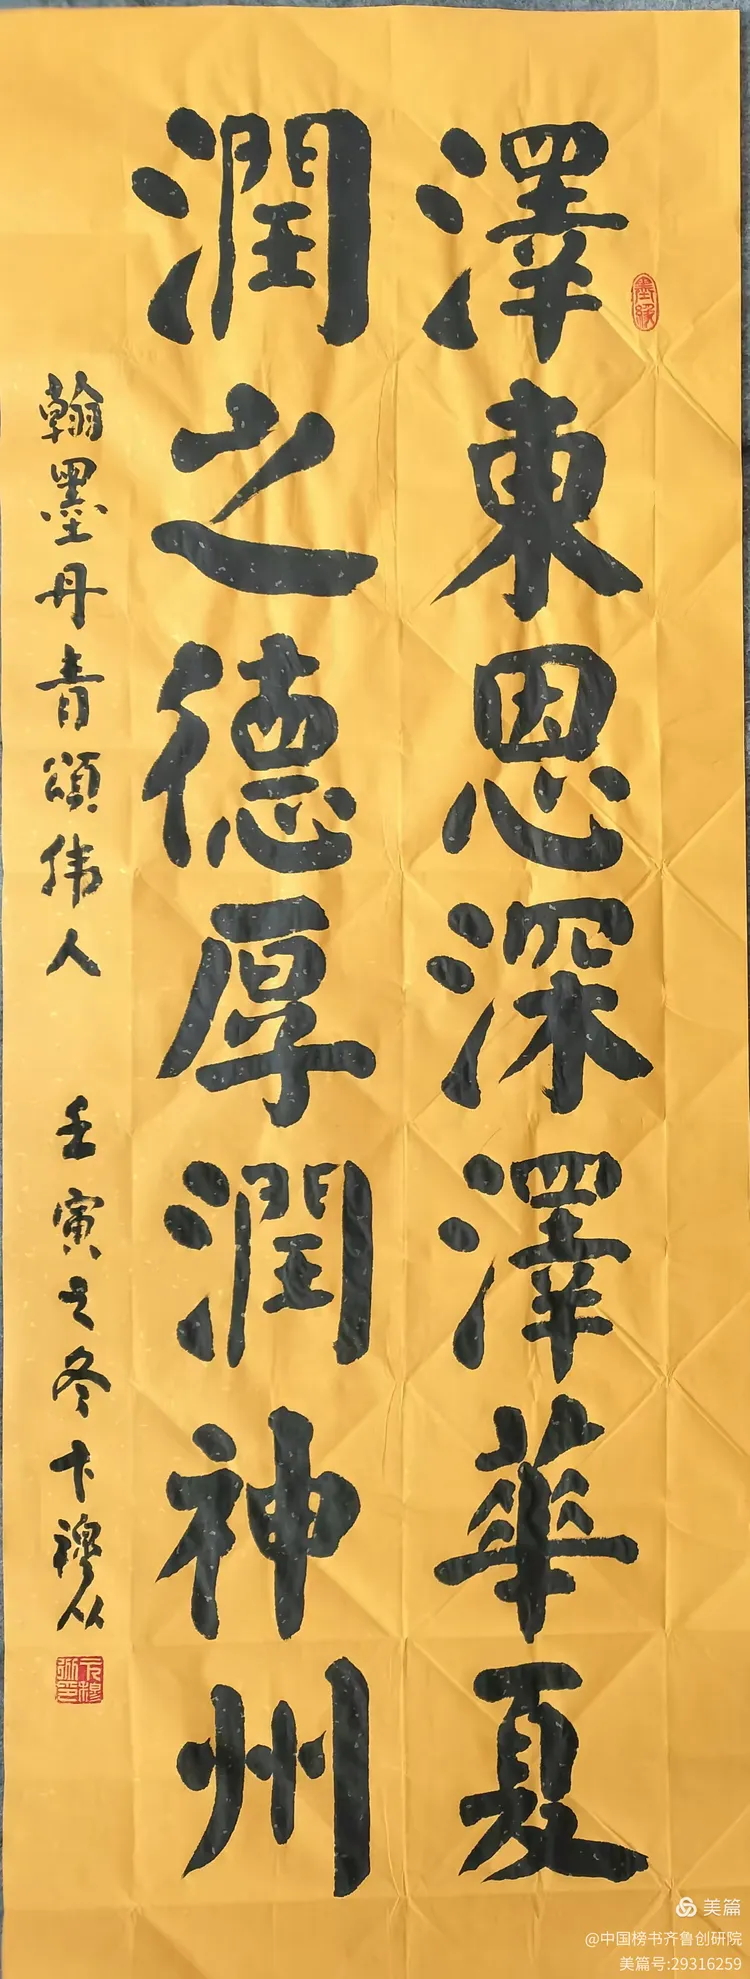 澤東恩深澤華夏
潤之德厚潤神州
翰墨丹青頌伟人
壬寅之冬卞穆
墨缘
美篇
@中国榜书齐鲁创研院
美篇号:29316259